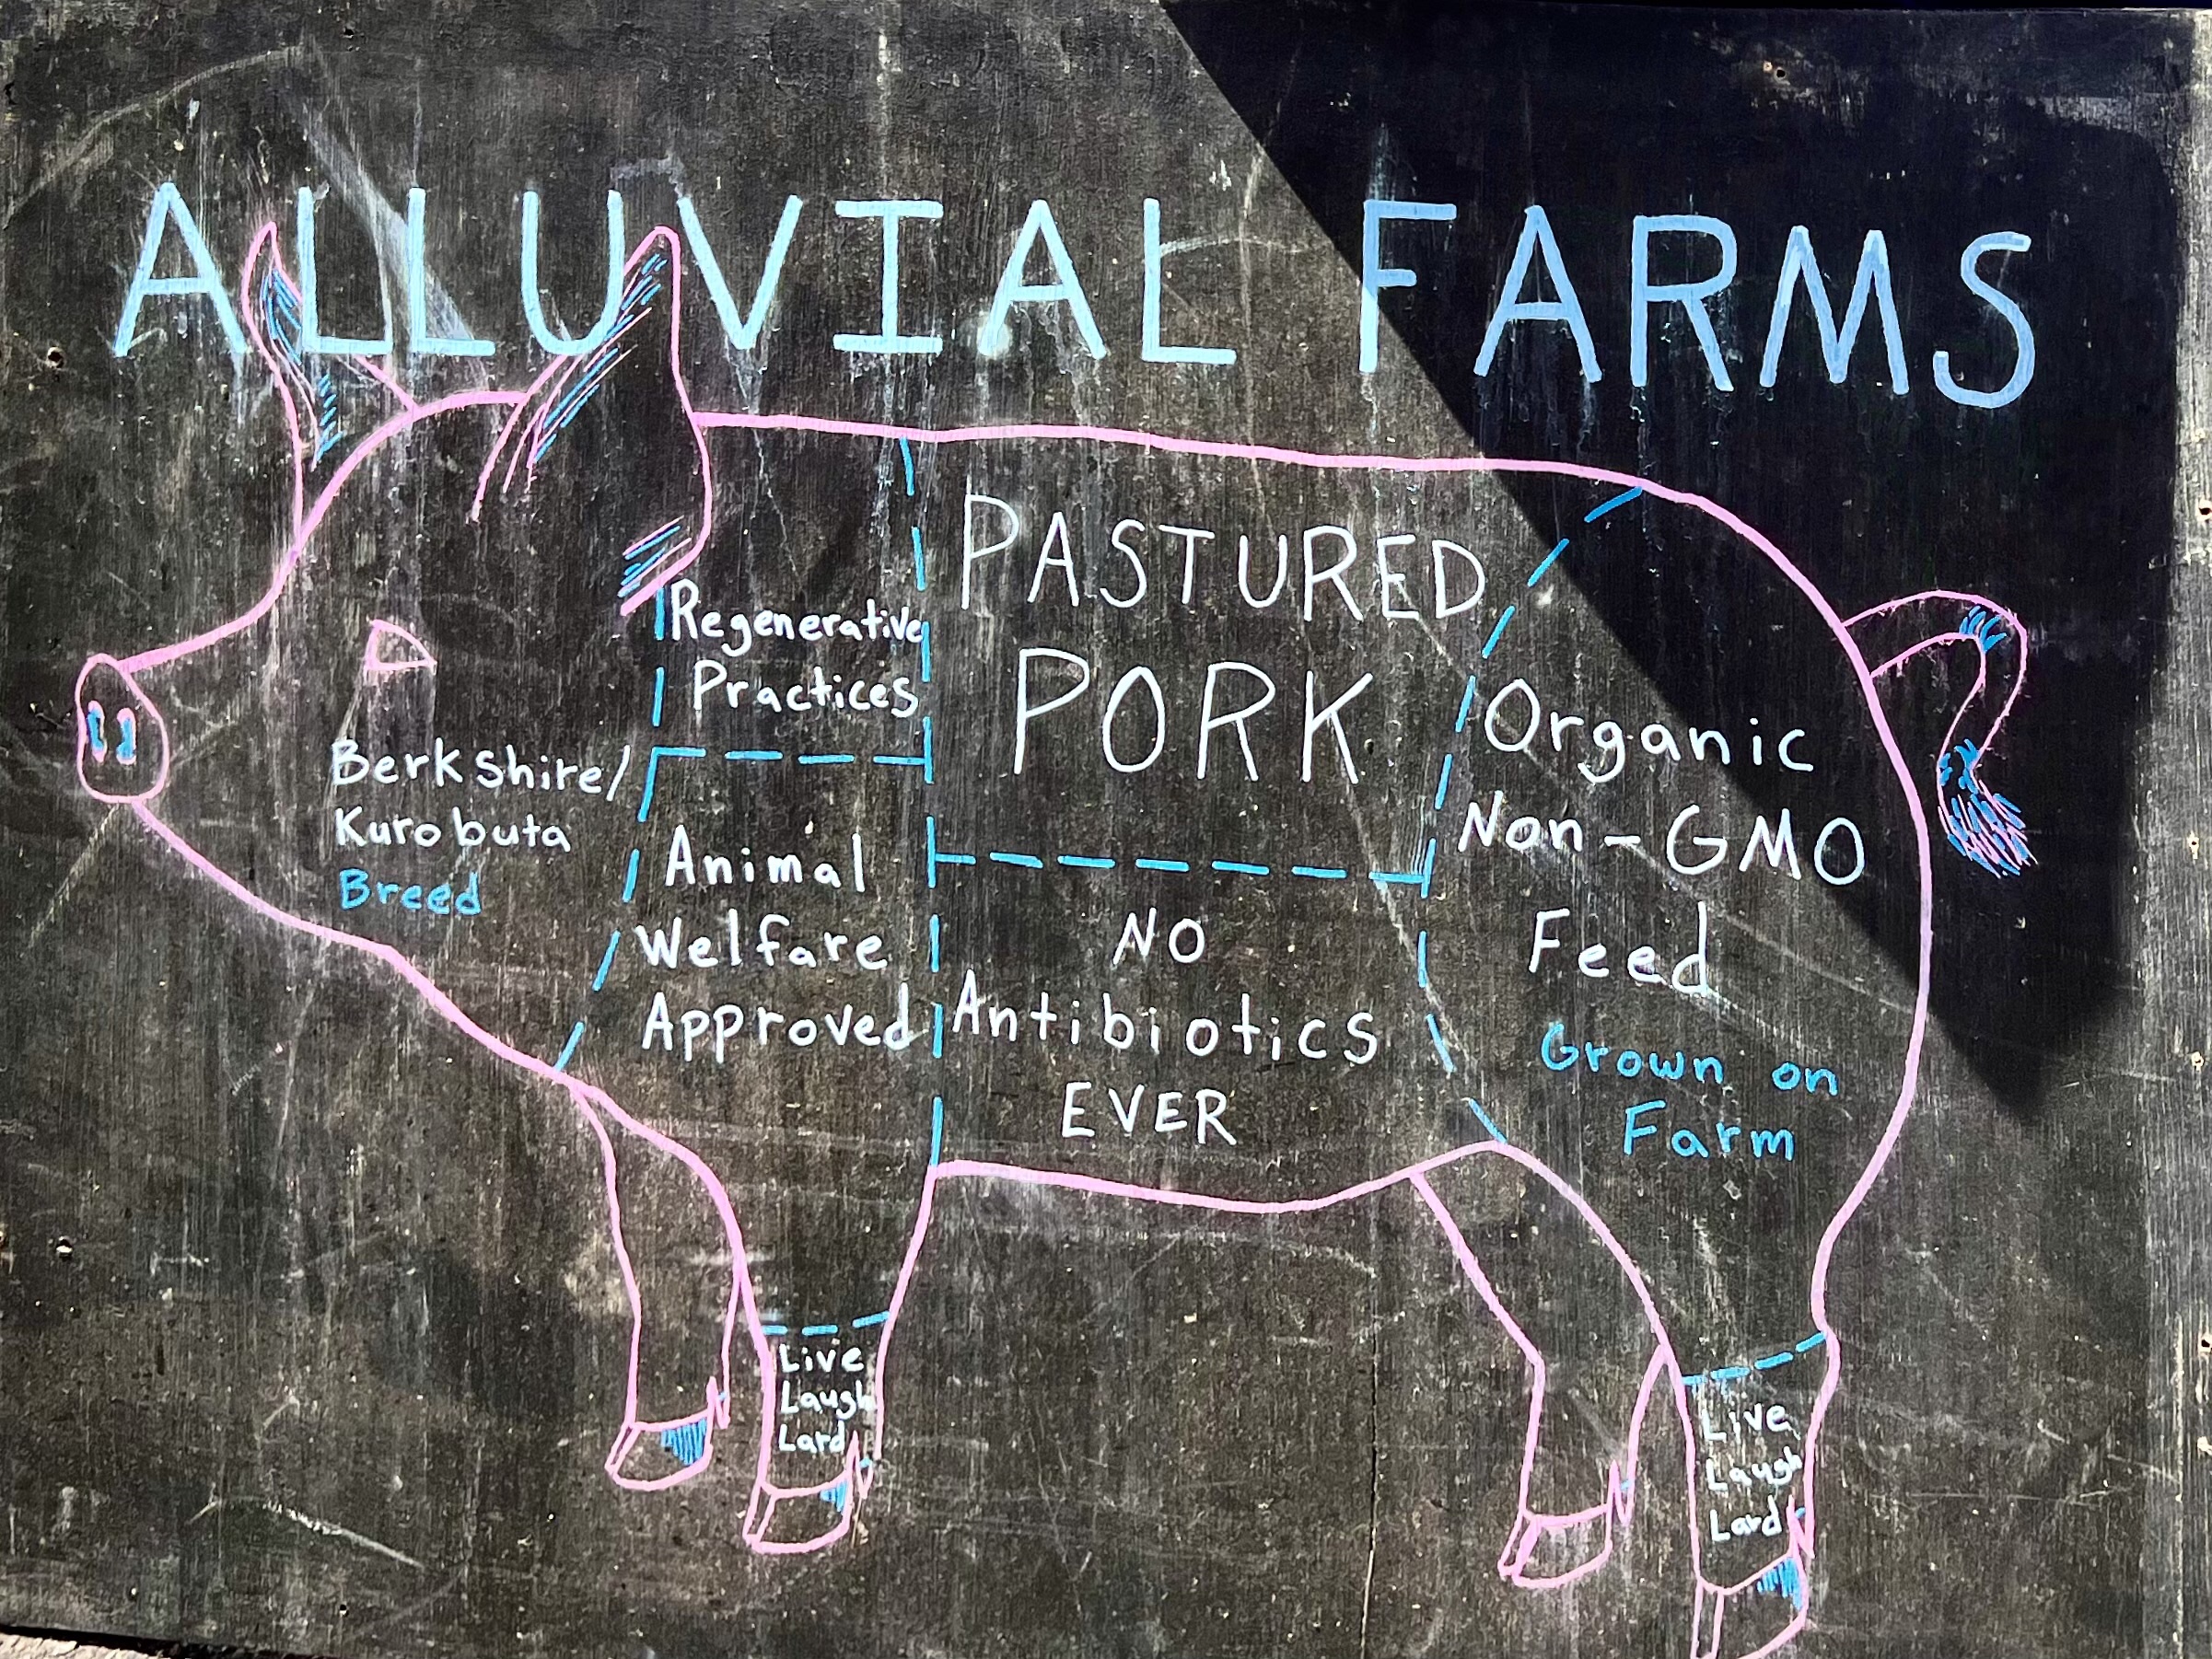 ALLUVIAL FARMS
Berkshire/
Kurobuta
Breed
Regenerative
Practices
Animal
Welfare
Approved
PASTURED
PORK
NO
Antibiotics
EVER
Organic
Non-GMO
Feed
Grown on
Farm
Live
Laugh
Lard
Live
Laugh
Lard